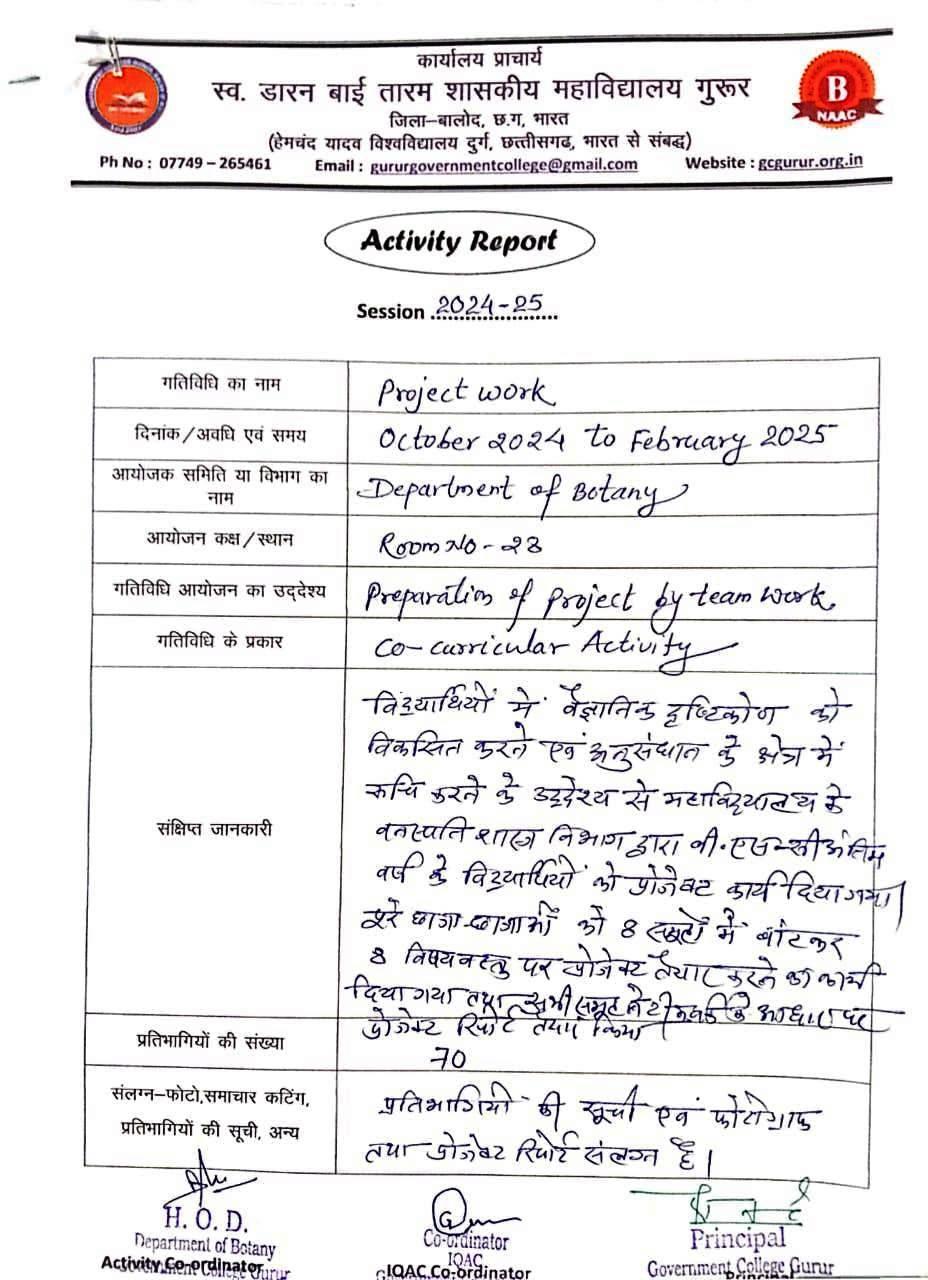 कार्यालय प्राचार्य
स्व. डारन बाई तारम शासकीय महाविद्यालय गुरूर
जिला–बालोद, छ.ग, भारत
(हेमचंद यादव विश्वविद्यालय दुर्ग, छत्तीसगढ, भारत से संबद्ध)
Ph No : 07749 – 265461 Email : gururgovernmentcollege@gmail.com Website : gcgurur.org.in
B
NAAC
Activity Report
Session 2024-25
गतिविधि का नाम Project work
दिनांक/अवधि एवं समय October 2024 to February 2025
आयोजक समिति या विभाग का
नाम
Department of Botany
आयोजन कक्ष/स्थान Room No - 28
गतिविधि आयोजन का उद्देश्य Preparation of Project by team work
गतिविधि के प्रकार Co-curricular Activity
संक्षिप्त जानकारी
विद्यार्थियों में वैज्ञानिक दृष्टिकोण को
विकसित करने एवं अनुसंधान के क्षेत्र में
रूचि करने के उद्देश्य से महाविद्यालय के
वनस्पति शास्त्र विभाग द्वारा बी.एस-सी अंतिम
वर्ष के विद्यार्थियों को प्रोजेक्ट कार्य दिया गया।
छात्रा-छात्राओं को 8 समूहों में बांटकर
8 विषयवस्तु पर प्रोजेक्ट तैयार करने का कार्य
दिया गया तथा सभी समूह ने के आधार पर
प्रोजेक्ट रिपोर्ट तैयार किया
प्रतिभागियों की संख्या 70
संलग्न–फोटो,समाचार कटिंग,
प्रतिभागियों की सूची, अन्य
प्रतिभागियों की सूची एवं फोटोग्राफ
तथा प्रोजेक्ट रिपोर्ट संलग्न है।
H. O. D.
Department of Botany
Government College Gurur
Activity Co-ordinator
Co-ordinator
IQAC
IQAC Co-ordinator
Principal
Government College Gurur